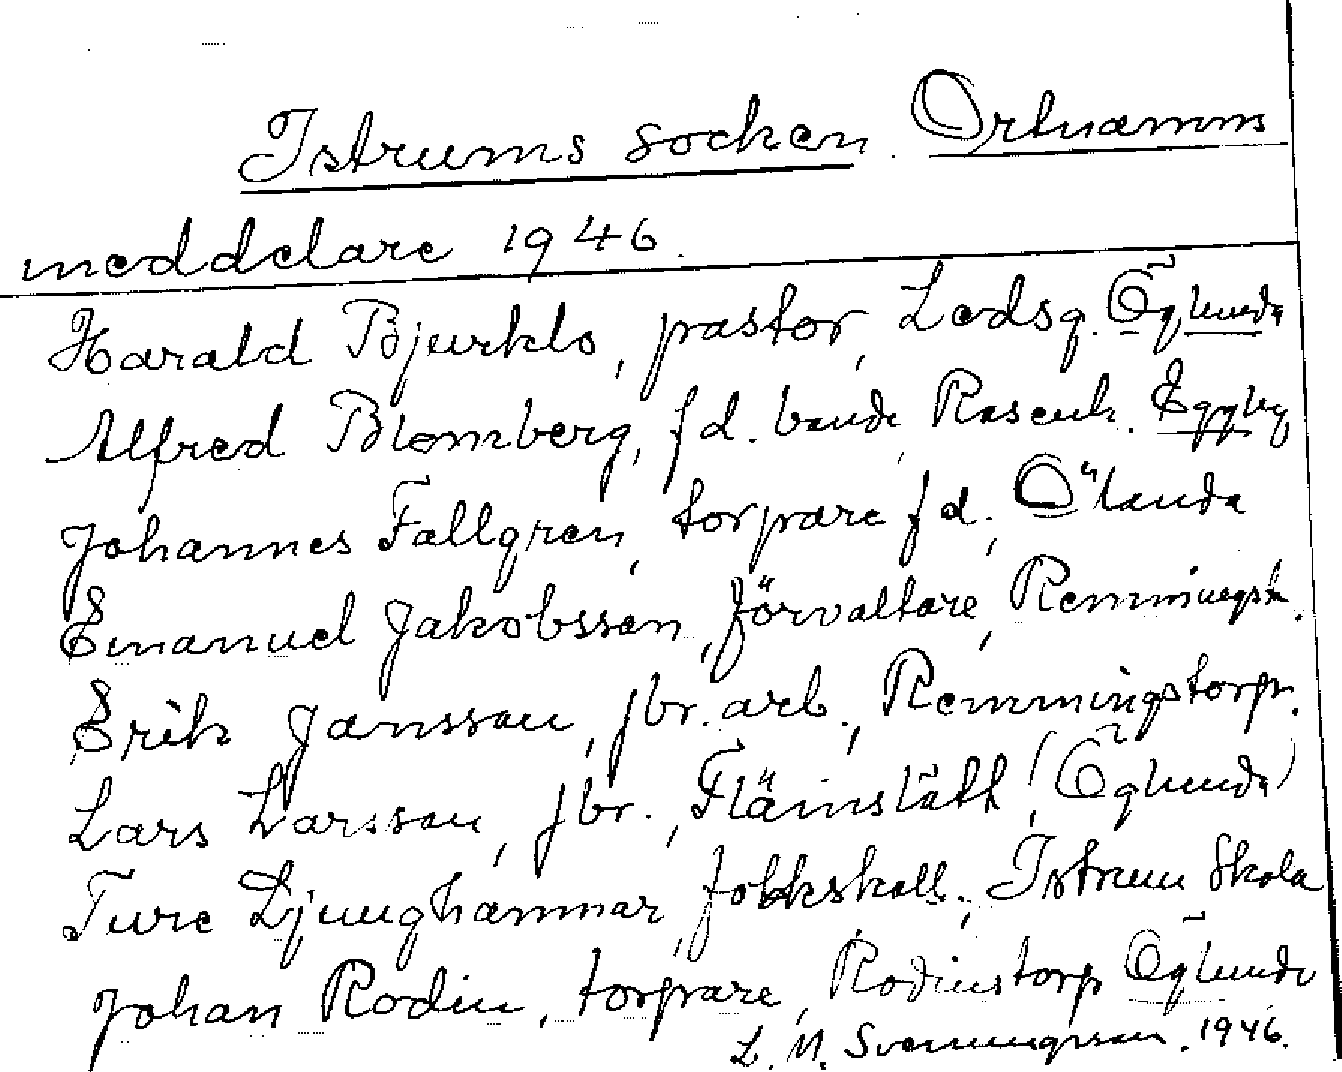 Istrums socken. Ortnamns
meddelare 1946.
Harald Bjurklo, pastor, Ledsg. Öglunda
Alfred Blomberg, f d. bonde, Rasenb. Eggby
Johannes Fallgren, torpare f d., Ölanda
Emanuel Jakobsson, förvaltare, Remmingst.
Erik Jansson, jbr. arb., Remmingstorp.
Lars Larsson, jbr., Flämslätt, (Öglunda)
Ture Ljunghammar, folkskoll., Istrum Skola
Johan Rodin, torpare, Rodinstorp Öglunda
L. M. Svenungsson. 1946.